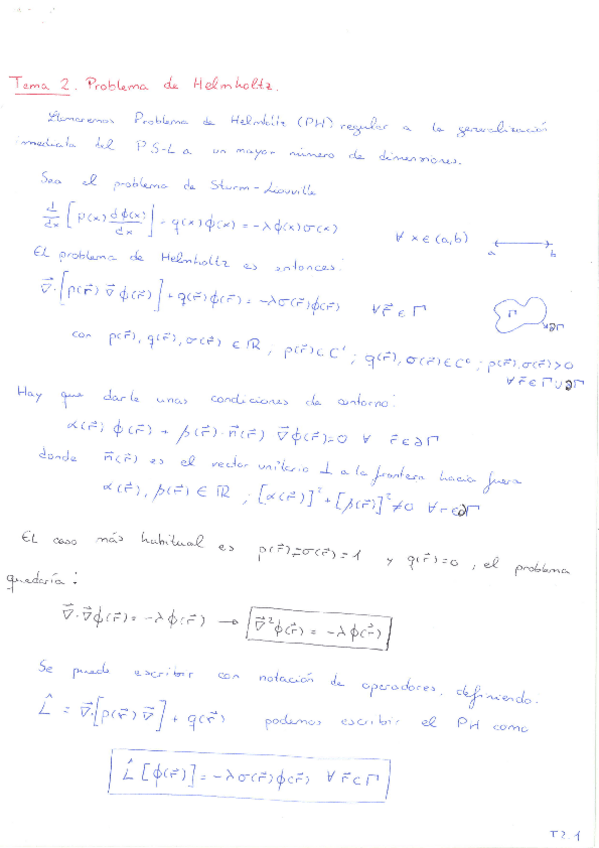 Tema 2. Problema de Helmholtz.
Llamaremos Problema de Helmholtz (PH) regular a la generalización
inmediata del P S-L a un mayor número de dimensiones.
Sea el problema de Sturm-Liouville
d/dx [p(x) dϕ(x)/dx] - q(x)ϕ(x) = -λϕ(x)σ(x)   ∀ x ∈ (a,b)   a   b
El problema de Helmholtz es entonces:
∇⃗·[p(r⃗) ∇⃗ϕ(r⃗)] + q(r⃗)ϕ(r⃗) = -λσ(r⃗)ϕ(r⃗)   ∀ r⃗ ∈ Γ   Γ   ∂Γ
con p(r⃗), q(r⃗), σ(r⃗) ∈ ℝ ; p(r⃗) ∈ C¹ ; q(r⃗), σ(r⃗) ∈ C⁰ ; p(r⃗), σ(r⃗) > 0
∀ r⃗ ∈ Γ ∪ ∂Γ
Hay que darle unas condiciones de contorno:
α(r⃗) ϕ(r⃗) + β(r⃗)· n⃗(r⃗) ∇⃗ϕ(r⃗) = 0 ∀ r⃗ ∈ ∂Γ
donde n⃗(r⃗) es el vector unitario ⊥ a la frontera hacia fuera
α(r⃗), β(r⃗) ∈ ℝ ; [α(r⃗)]² + [β(r⃗)]² ≠ 0 ∀ r ∈ ∂Γ
El caso más habitual es p(r⃗) = σ(r⃗) = 1 y q(r⃗) = 0, el problema
quedaría:
∇⃗·∇⃗ϕ(r⃗) = -λϕ(r⃗) → ∇⃗²ϕ(r⃗) = -λϕ(r⃗)
Se puede escribir con notación de operadores, definiendo.
L̂ = ∇⃗·[p(r⃗) ∇⃗] + q(r⃗) podemos escribir el PH como
L̂[ϕ(r⃗)] = -λσ(r⃗)ϕ(r⃗) ∀ r⃗ ⊂ Γ
T2.1